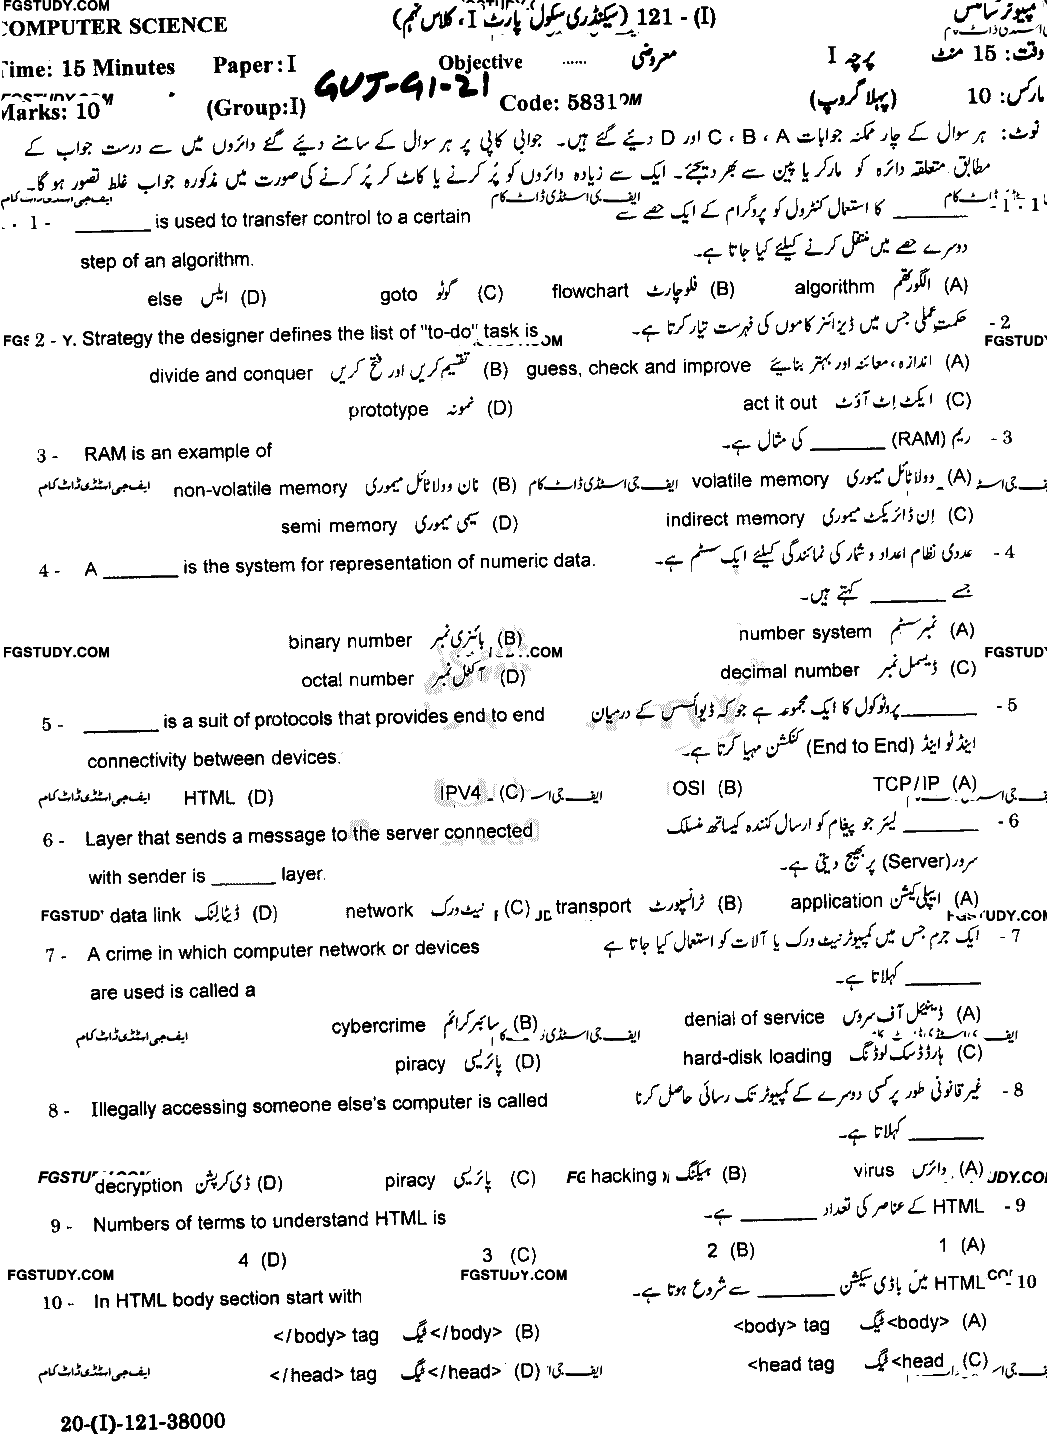 FGSTUDY.COM
COMPUTER SCIENCE 121 - (I) (سیکنڈری سکول پارٹ I، کلاس نہم) کمپیوٹر سائنس
Time: 15 Minutes Paper: I Objective ...... معروضی پرچہ I وقت: 15 منٹ
GUJ-G1-21
Marks: 10 (Group:I) Code: 5831 (پہلا گروپ) مارکس: 10
نوٹ: ہر سوال کے چار ممکنہ جوابات A ، B ، C اور D دیئے گئے ہیں۔ جوابی کاپی پر ہر سوال کے سامنے دیئے گئے دائروں میں سے درست جواب کے
مطابق متعلقہ دائرہ کو مارکر یا پین سے بھر دیجئے۔ ایک سے زیادہ دائروں کو پُر کرنے یا کاٹ کر پُر کرنے کی صورت میں مذکورہ جواب غلط تصور ہو گا۔
ایف جی اسٹڈی ڈاٹ کام ایف جی اسٹڈی ڈاٹ کام
1 - ________ is used to transfer control to a certain ________ کا استعمال کنٹرول کو پروگرام کے ایک حصے سے 1 - 1
step of an algorithm. دوسرے حصے میں منتقل کرنے کیلئے کیا جاتا ہے۔
(A) الگورتھم algorithm (B) فلوچارٹ flowchart (C) گوٹو goto (D) ایلس else
2 - Y. Strategy the designer defines the list of "to-do" task is حکمت عملی جس میں ڈیزائنر کاموں کی فہرست تیار کرتا ہے۔ - 2
FGSTUDY
(A) اندازہ، معائنہ اور بہتر بنایئے guess, check and improve (B) تقسیم کریں اور فتح کریں divide and conquer
(C) ایکٹ اِٹ آؤٹ act it out (D) نمونہ prototype
3 - RAM is an example of ریم (RAM) ________ کی مثال ہے۔ - 3
(A) وولاٹائل میموری volatile memory (B) نان وولاٹائل میموری non-volatile memory
ایف جی اسٹڈی ڈاٹ کام ایف جی اسٹڈی ڈاٹ کام
(C) اِن ڈائریکٹ میموری indirect memory (D) سیمی میموری semi memory
4 - A ________ is the system for representation of numeric data. عددی نظام اعداد و شمار کی نمائندگی کیلئے ایک سسٹم ہے۔ - 4
جسے ________ کہتے ہیں۔
(A) نمبر سسٹم number system (B) بائنری نمبر binary number
FGSTUDY.COM .COM FGSTUDY
(C) ڈیسمل نمبر decimal number (D) آکٹل نمبر octal number
5 - ________ is a suit of protocols that provides end to end ________ پروٹوکول کا ایک مجموعہ ہے جو کہ ڈیوائسس کے درمیان - 5
connectivity between devices. اینڈ ٹو اینڈ (End to End) کنکشن مہیا کرتا ہے۔
(A) TCP/IP (B) OSI (C) IPV4 (D) HTML
ایف جی اسٹڈی ڈاٹ کام
6 - Layer that sends a message to the server connected ________ لیئر جو پیغام کو ارسال کنندہ کیساتھ منسلک - 6
with sender is ______ layer. سرور (Server) پر بھیج دیتی ہے۔
(A) ایپلی کیشن application (B) ٹرانسپورٹ transport (C) نیٹ ورک network (D) ڈیٹا لنک data link
FGSTUD UDY.COM
7 - A crime in which computer network or devices ایک جرم جس میں کمپیوٹر نیٹ ورک یا آلات کو استعمال کیا جاتا ہے - 7
are used is called a ________ کہلاتا ہے۔
(A) ڈینیئل آف سروس denial of service (B) سائبر کرائم cybercrime
ایف جی اسٹڈی ڈاٹ کام
(C) ہارڈ ڈسک لوڈنگ hard-disk loading (D) پائریسی piracy
8 - Illegally accessing someone else's computer is called غیر قانونی طور پر کسی دوسرے کے کمپیوٹر تک رسائی حاصل کرنا - 8
________ کہلاتا ہے۔
(A) وائرس virus (B) ہیکنگ hacking (C) پائریسی piracy (D) ڈی کرپشن decryption
9 - Numbers of terms to understand HTML is HTML کے عناصر کی تعداد ________ ہے۔ - 9
(A) 1 (B) 2 (C) 3 (D) 4
FGSTUDY.COM FGSTUDY.COM
10 - In HTML body section start with HTML میں باڈی سیکشن ________ سے شروع ہوتا ہے۔ - 10
(A) <body> ٹیگ <body> tag (B) </body> ٹیگ </body> tag
(C) <head ٹیگ <head tag (D) </head> ٹیگ </head> tag
ایف جی اسٹڈی ڈاٹ کام
20-(I)-121-38000